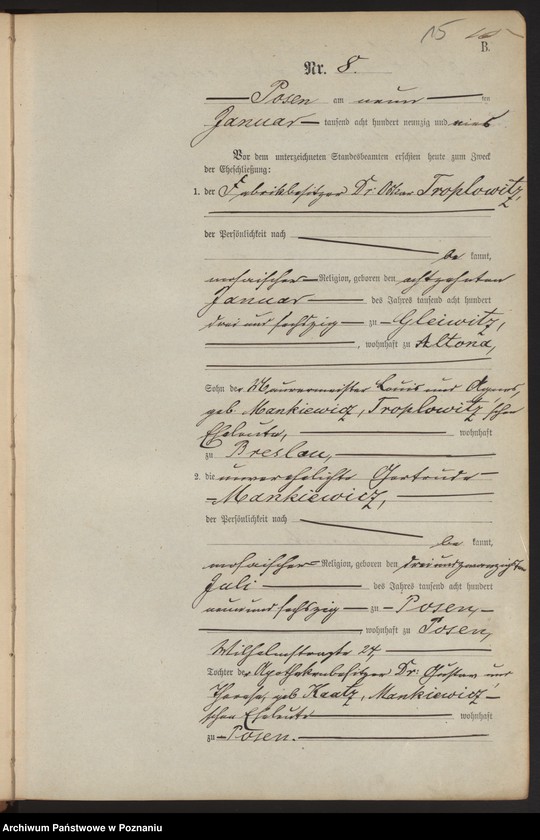 15
B.
Nr. 8.
Posen am neun ten
Januar tausend acht hundert neunzig und
Vor dem unterzeichneten Standesbeamten erschien heute zum Zweck
der Eheschließung:
1. der Fabrikbesitzer Dr. Oskar Troplowitz,
der Persönlichkeit nach
be kannt,
mosaischer Religion, geboren den achtzehnten
Januar des Jahres tausend acht hundert
drei und sechszig zu Gleiwitz,
, wohnhaft zu Altona,
Sohn der Maurermeister Louis und Agnes,
geb. Mankiewicz, Troplowitz'schen
Eheleute, wohnhaft
zu Breslau,
2. die unverehelichte Gertrude
Mankiewicz,
der Persönlichkeit nach
be kannt,
mosaischer Religion, geboren den dreiundzwanzigsten
Juli des Jahres tausend acht hundert
neunundsechszig zu Posen,
, wohnhaft zu Posen,
Wilhelmstraße 24,
Tochter der Apothekenbesitzer Dr. Gustav und
Therese, geb. Kaatz, Mankiewicz'
schen Eheleute wohnhaft
zu Posen.
Archiwum Państwowe w Poznaniu